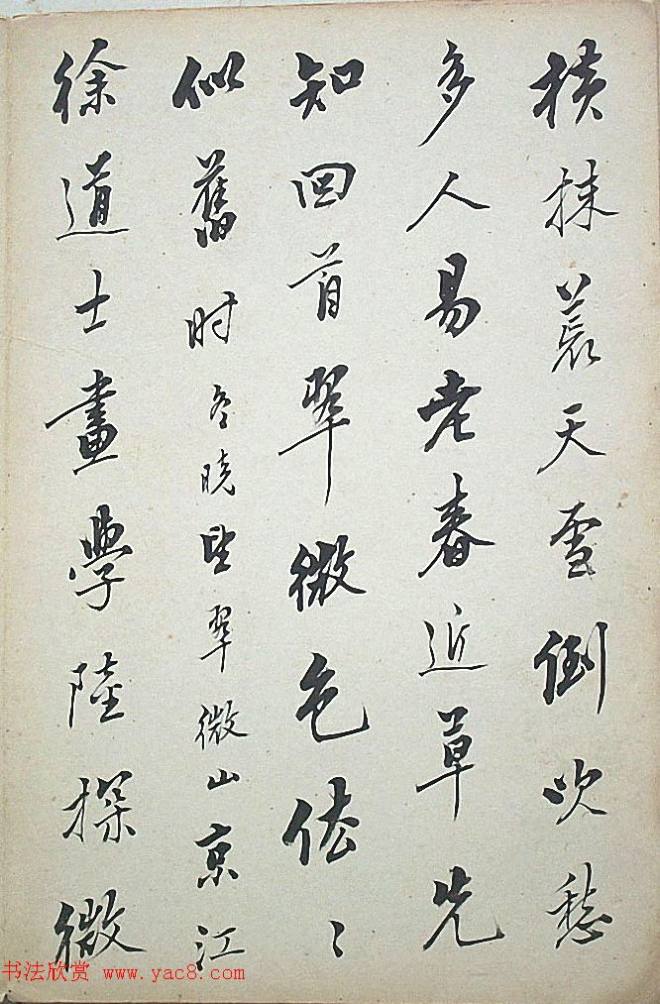 横抹天雪倒吹愁
多人易老春近草先
知回首翠微色依〻
似舊时冬晓望翠微山京江
徐道士畫學陸探微
书法欣赏 www.yac8.com